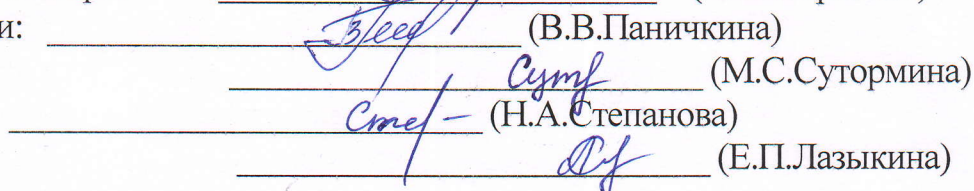 и: (В.В.Паничкина)
(М.С.Сутормина)
(Н.А.Степанова)
(Е.П.Лазыкина)